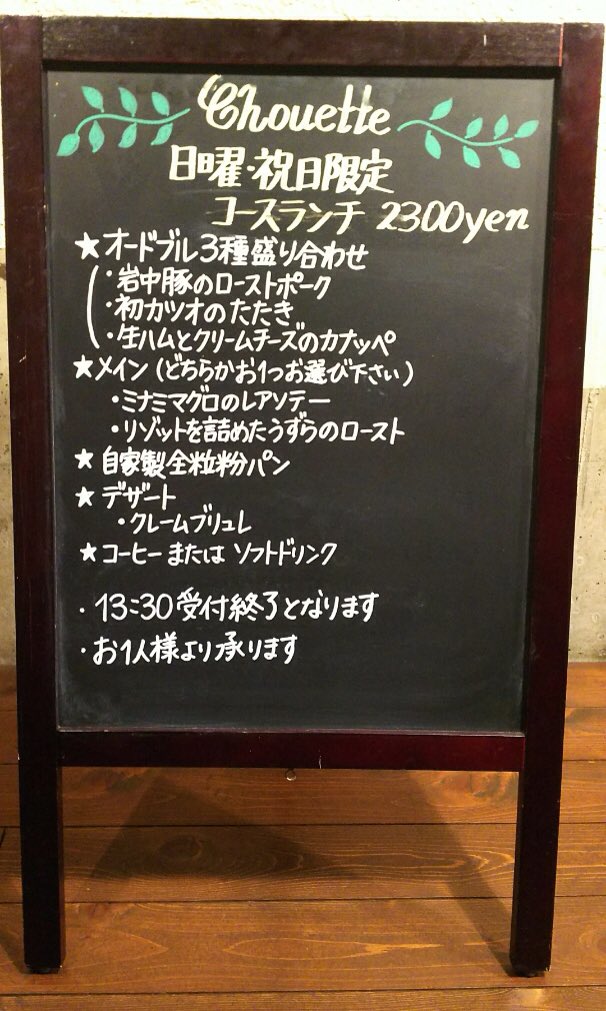 Chouette
日曜・祝日限定
コースランチ 2300yen
★オードブル3種盛り合わせ
・岩中豚のローストポーク
・初カツオのたたき
・生ハムとクリームチーズのカナッペ
★メイン(どちらかお1つお選び下さい)
・ミナミマグロのレアソテー
・リゾットを詰めたうずらのロースト
★自家製全粒粉パン
★デザート
・クレームブリュレ
★コーヒーまたはソフトドリンク
・13:30受付終了となります
・お1人様より承ります